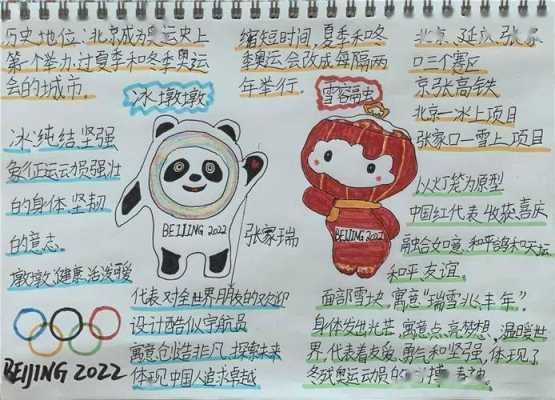 历史地位:北京成为奥运史上
第一个举办过夏季和冬季奥运
会的城市.
缩短时间,夏季和冬
季奥运会改成每隔两
年举行.
北京、延庆、张家
口三个赛区
京张高铁
北京一冰上项目
张家口一雪上项目
冰墩墩
雪容融
冰:纯结坚强
象征运动员强壮
的身体.坚韧
的意志.
墩墩:健康.活泼
BEIJING 2022
张家瑞
BEIJING 2022
以灯笼为原型
中国红代表收获.喜庆
融合如意.和平鸽和天坛
和平友谊.
代表对全世界朋友的欢迎
设计酷似宇航员
寓意创造非凡.探索未来
体现中国人追求卓越
面部雪块,寓意“瑞雪兆丰年”.
身体发出光芒,寓意点亮梦想,温暖世
界,代表着友爱,勇气和坚强,体现了
冬残奥运动员的 搏
BEIJING 2022